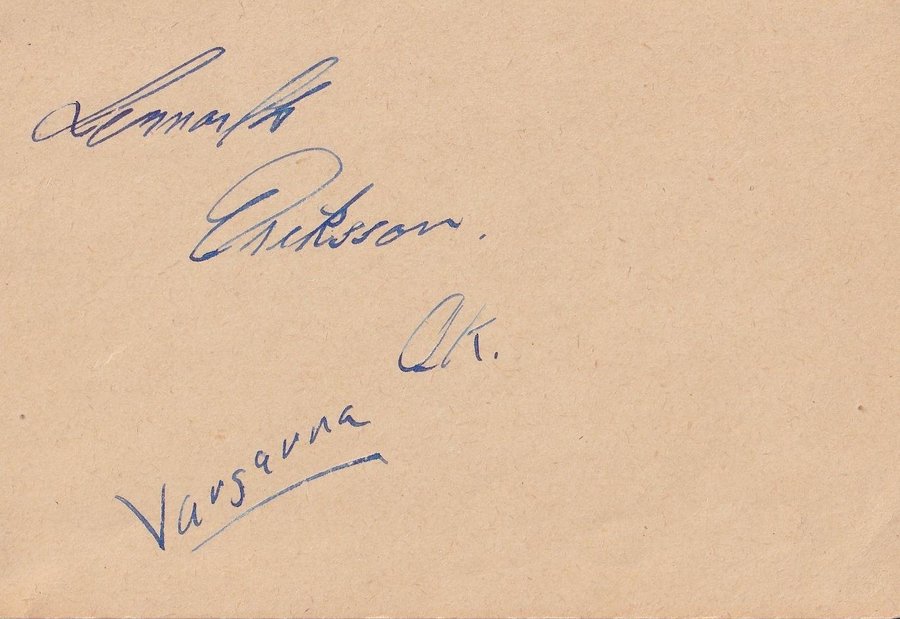 Lennarth
Eriksson.
OK.
Vargarna